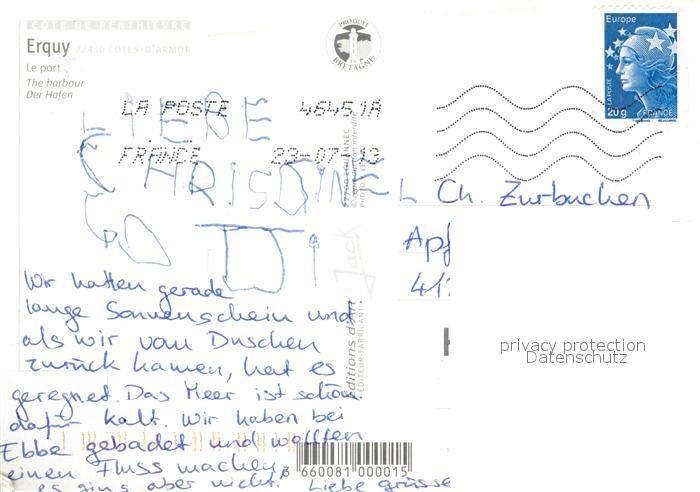 CÔTE DE PENTHIÈVRE
Erquy 22430 CÔTES-D'ARMOR
Le port
The harbour
Der Hafen
PRODUIT EN BRETAGNE
Europe
LA POSTE
20g FRANCE
LA POSTE 46451A
FRANCE 22-07-13
LIEBE
CHRISDINE
Ch. Zurbuchen
Apf
41
Jack
éditions d'art
ÉDITEUR-FABRICANT
Wir hatten gerade
lange Sonnenschein und
als wir vom Duschen
zurück kamen, hat es
geregnet. Das Meer ist schön
dafür kalt. Wir haben bei
Ebbe gebadet und wollten
einen Fluss machen,
es ging aber nicht. Liebe grüsse
3 660081 000015
privacy protection
Datenschutz